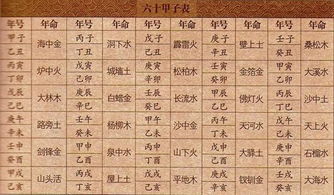 六十甲子表
年号 年命 年号 年命 年号 年命 年号 年命 年号 年命
甲子 丙子 戊子 庚子 壬子
海中金 洞下水 霹雳火 壁上土 桑松木
乙丑 丁丑 己丑 辛丑 癸丑
丙寅 戊寅 庚寅 壬寅 甲寅
炉中火 城墙土 松柏木 金箔金 大溪水
丁卯 己卯 辛卯 癸卯 乙卯
戊辰 庚辰 壬辰 甲辰 丙辰
大林木 白蜡金 长流水 佛灯火 沙中土
己巳 辛巳 癸巳 乙巳 丁巳
庚午 壬午 甲午 丙午 戊午
路旁土 杨柳木 沙中金 天河水 天上火
辛未 癸未 乙未 丁未 己未
壬申 甲申 丙申 戊申 庚申
剑锋金 泉中水 山下火 大驿土 石榴木
癸酉 乙酉 丁酉 己酉 辛酉
甲戌 丙戌 戊戌 庚戌 壬戌
山头活 屋上土 平地木 钗钏金 大海水
乙亥 丁亥 己亥 辛亥 癸亥